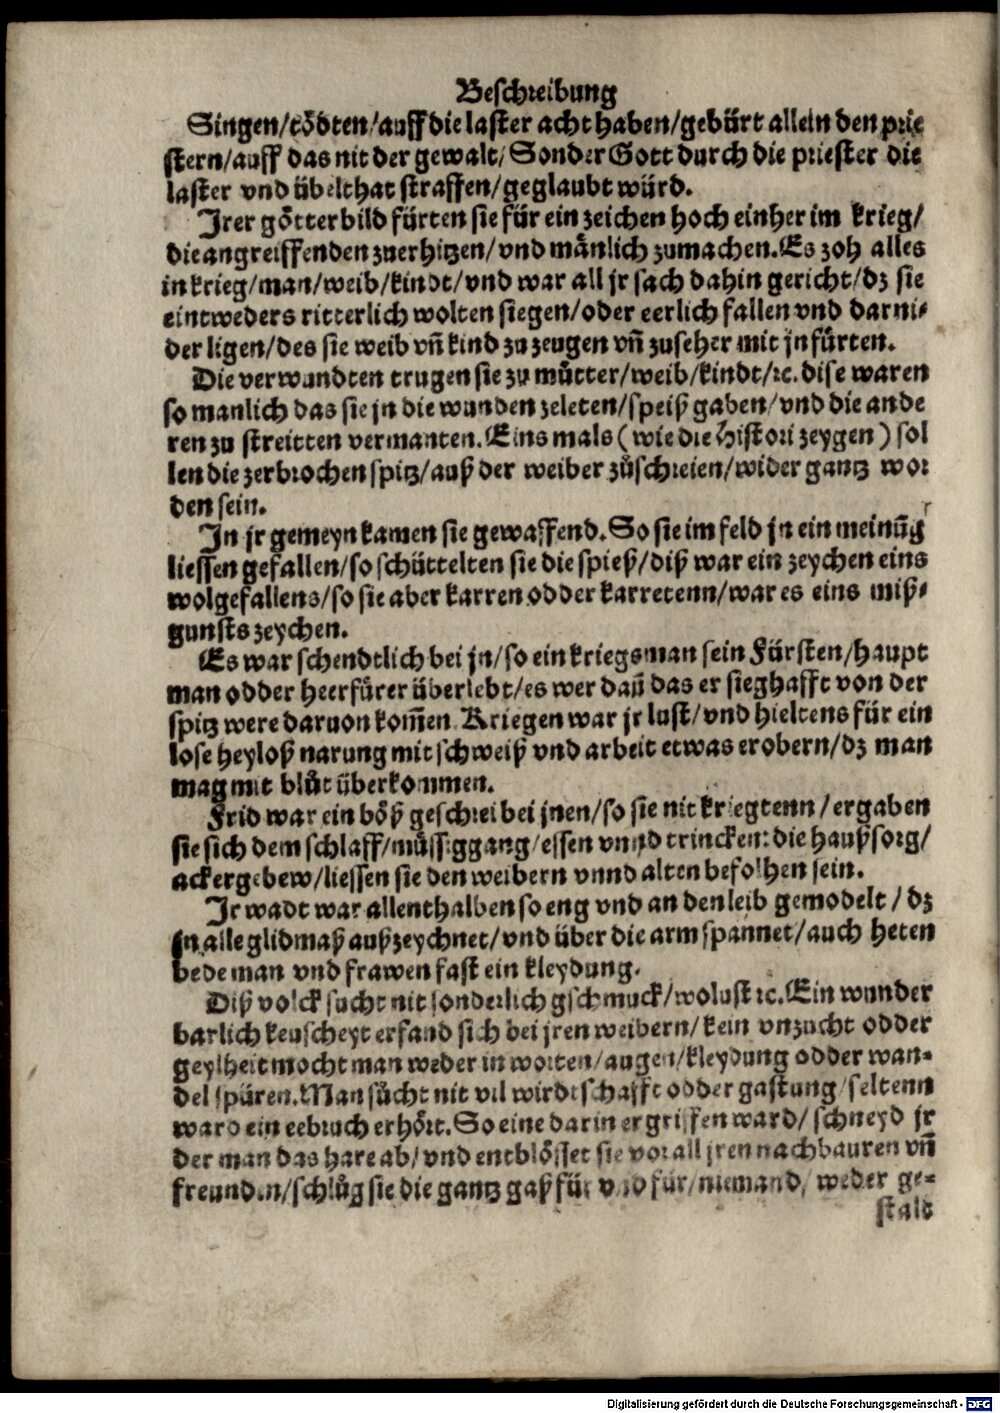 Beschreibung
Singen/tödten/auff die laster acht haben/gebürt allein den prie
stern/auff das nit der gewalt/Sonder Gott durch die priester die
laster vnd übelthat straffen/geglaubt würd.
Jrer götter bild fürten sie für ein zeichen hoch einher im krieg/
die angreiffenden zuerhitzen/vnd mänlich zumachen. Es zoh alles
in krieg/man/weib/kindt/vnd war all jr sach dahin gericht/dz sie
eintweders ritterlich wolten siegen/oder eerlich fallen vnd darni⸗
der ligen/des sie weib vñ kind zu zeugen vñ zuseher mit jn fürten.
Die verwundten trugen sie zu mütter/weib/kindt/ꝛc. dise waren
so manlich das sie jn die wunden zeleten/speiß gaben/vnd die ande
ren zu streitten vermanten. Eins mals (wie die Histori zeygen) sol
len die zerbrochen spitz/auß der weiber zůschreien/wider gantz wor
den sein.
In jr gemeyn kamen sie gewaffend. So sie im feld jn ein meinũg
liessen gefallen/so schüttelten sie die spieß/diß war ein zeychen eins
wolgefallens/so sie aber karren odder karretenn/war es eins miß⸗
gunsts zeychen.
Es war schendtlich bei jn/so ein kriegsman sein Fürsten/haupt
man odder heerfürer überlebt/es wer dañ das er sieghafft von der
spitz were daruon kom̃en. Kriegen war jr lust/vnd hieltens für ein
lose heyloß narung mit schweiß vnd arbeit etwas erobern/dz man
mag mit blůt überkommen.
Frid war ein böß geschrei bei jnen/so sie nit kriegtenn/ergaben
sie sich dem schlaff/müssiggang/essen vnnd trincken: die haußsorg/
ackergebew/liessen sie den weibern vnnd alten befolhen sein.
Jr wadt war allenthalben so eng vnd an den leib gemodelt/dz
jn alle glidmaß außzeychnet/vnd über die arm spannet/auch heten
bede man vnd frawen fast ein kleydung.
Diß volck sucht nit sonderlich gschmuck/wolust ꝛc. Ein wunder
barlich keuscheyt erfand sich bei jren weibern/kein vnzucht odder
geylheit mocht man weder in worten/augen/kleydung odder wan⸗
del spüren. Man sůcht nit vil wirdtschafft odder gastung/seltenn
ward ein eebruch erhört. So eine darin ergriffen ward/schneyd jr
der man das hare ab/vnd entblösset sie vor all jren nachbauren vñ
freunden/schlůg sie die gantz gaß für vnd für/niemand/weder ge⸗
stald
Digitalisierung gefördert durch die Deutsche Forschungsgemeinschaft - DFG